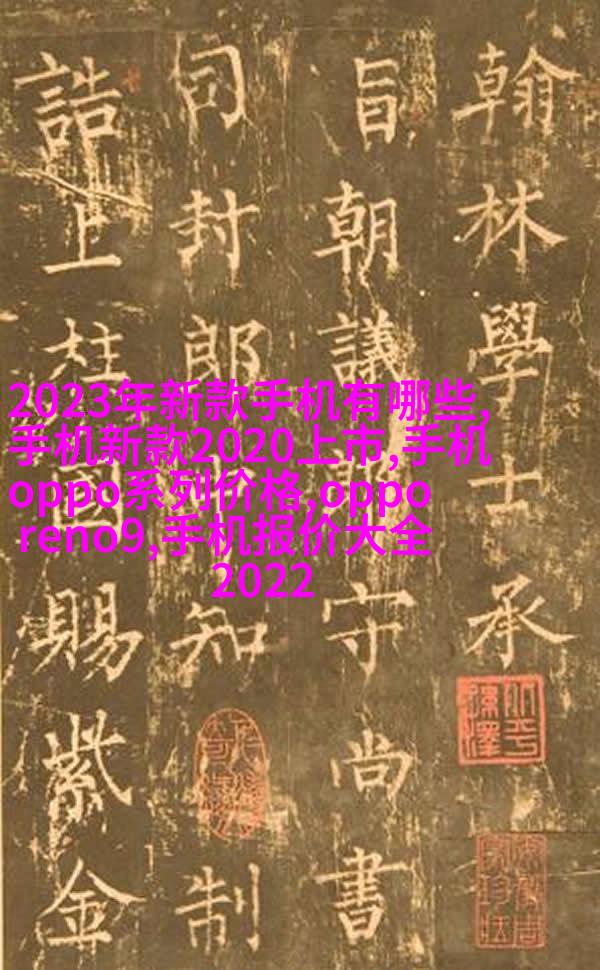 翰林學士承
旨朝議郎守尚書
司封郎中知制
誥上柱國賜紫金
2023年新款手机有哪些,
手机新款2020上市,手机
oppo系列价格,oppo
reno9,手机报价大全
2022